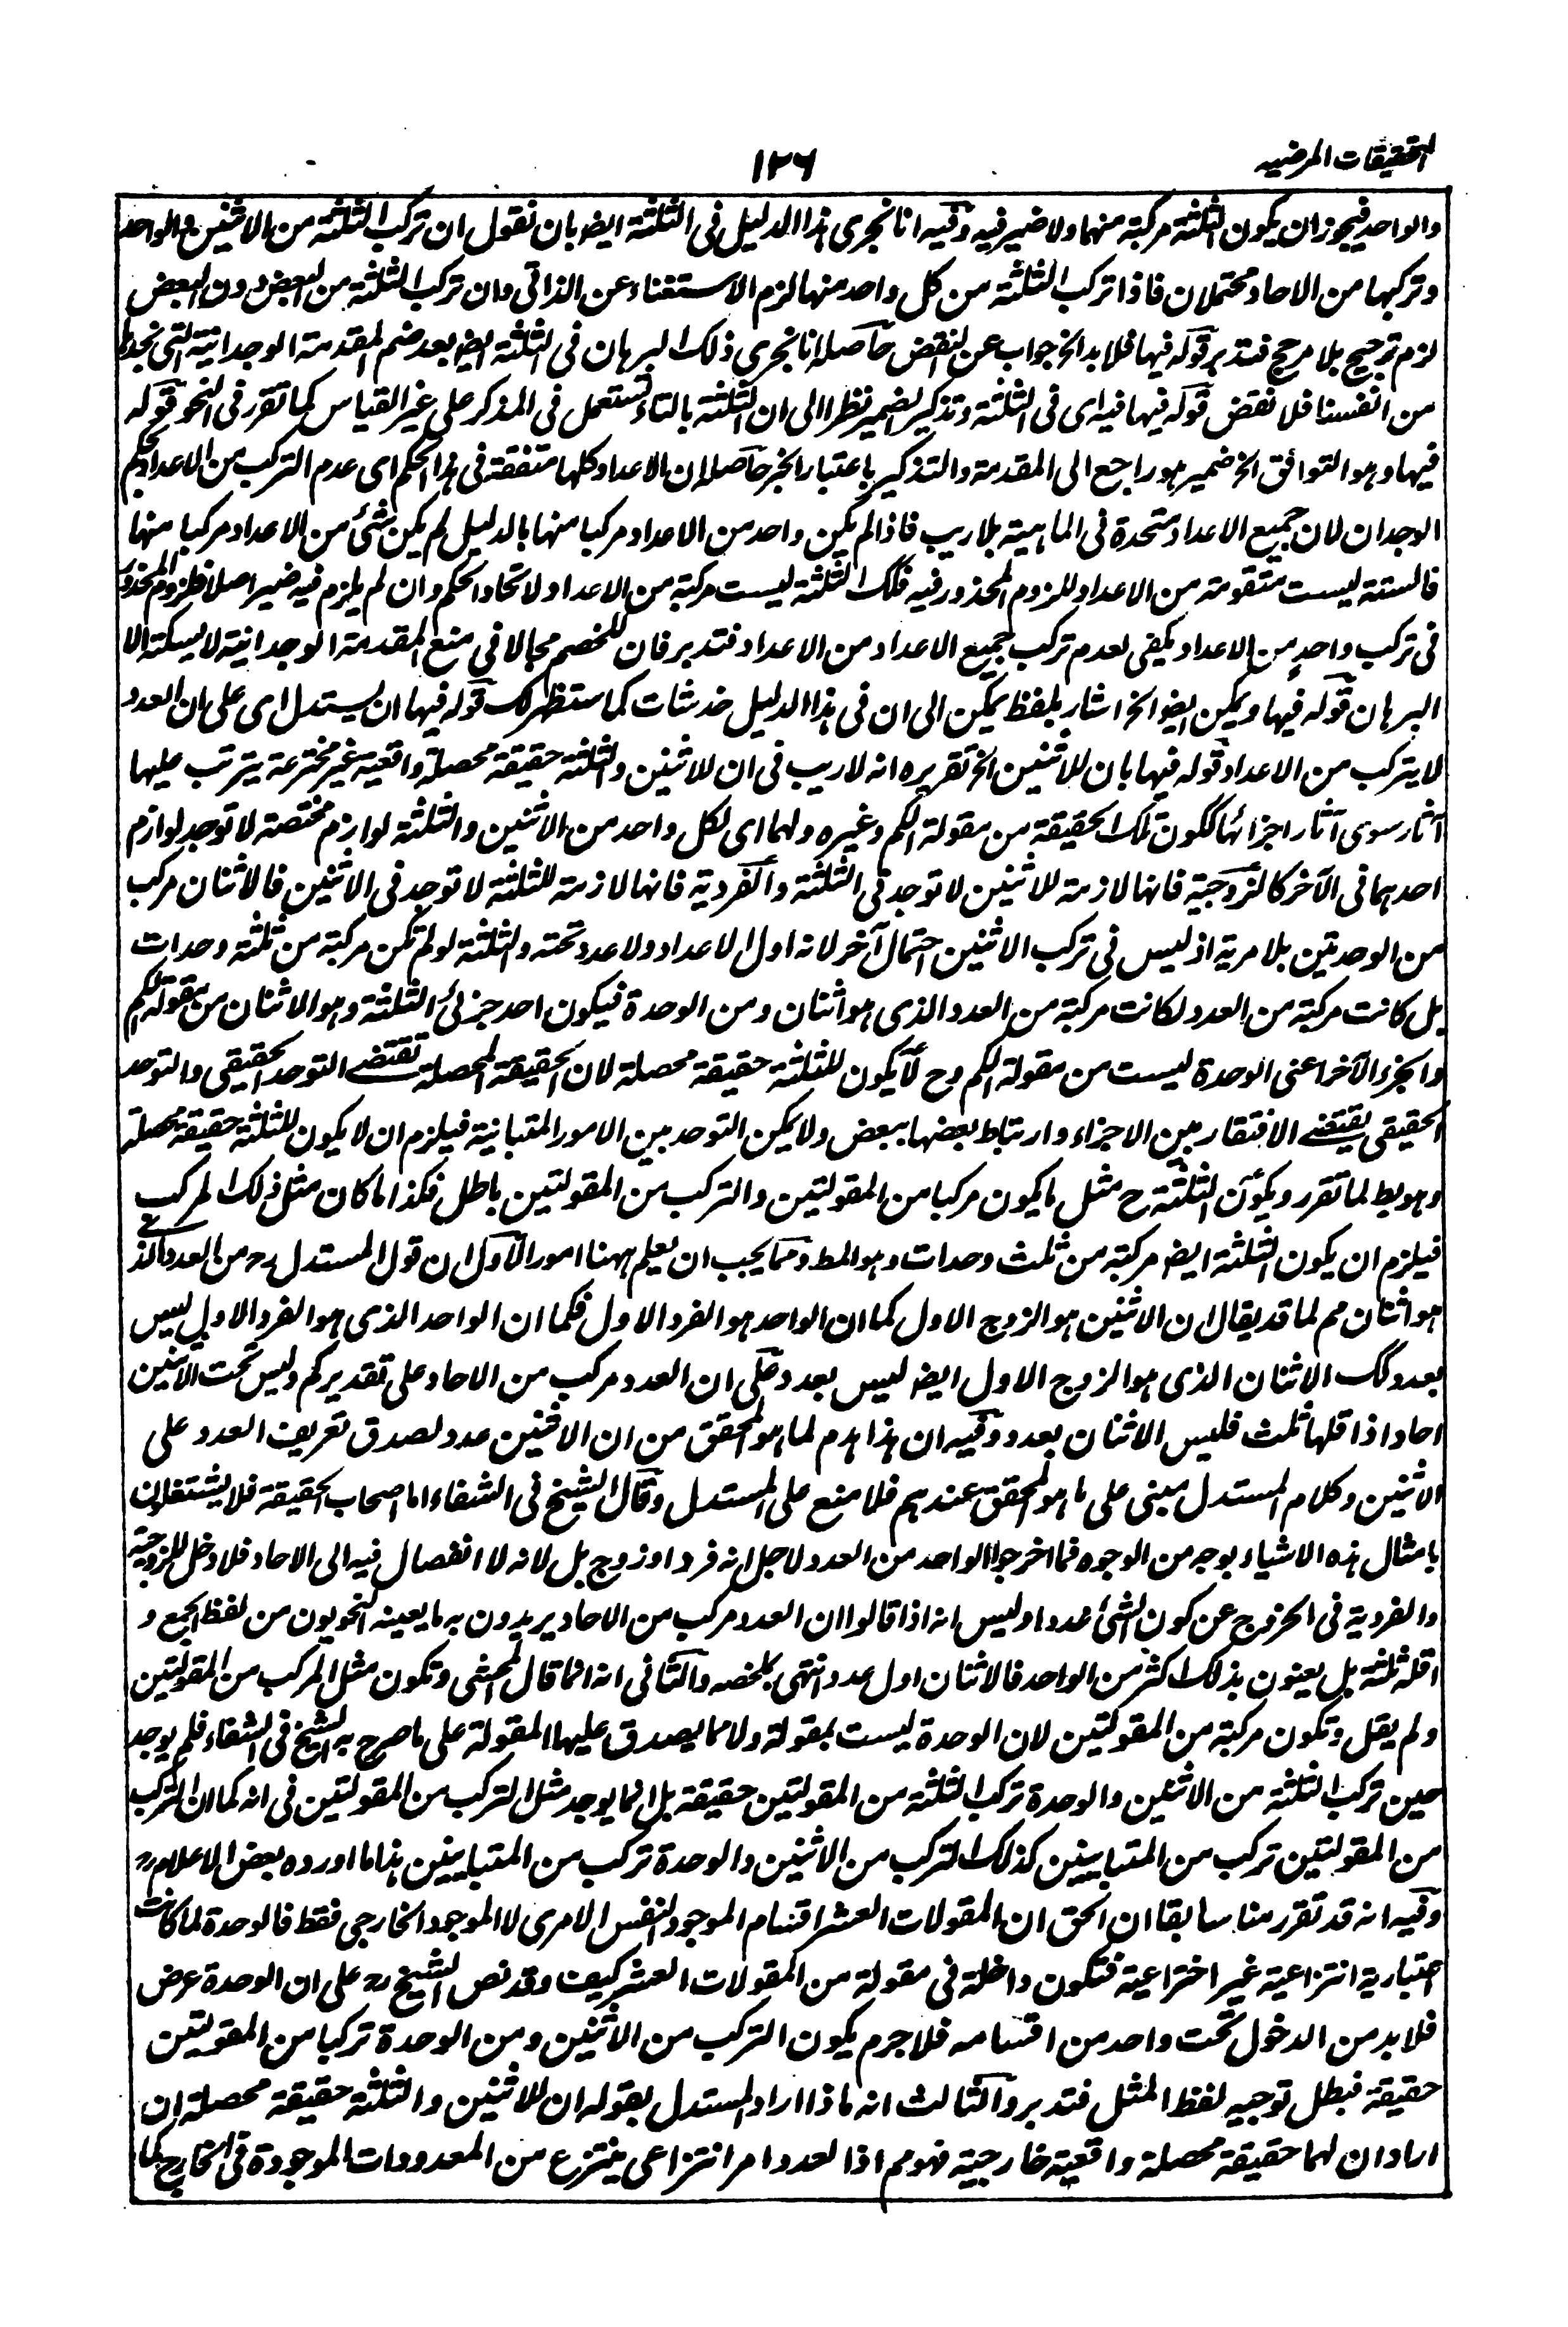 التحقيقات المرضيه
١٢٦
والواحد فيجوز ان يكون الثلثة مركبة منهما ولا ضير فيه وفيه انا نجرى هذا الدليل فى الثلثة ايضا بان نقول ان تركب الثلثة من الاثنين والواحد
وتركبها من الاحاد محتملان فاذا تركب الثلثة من كل واحد منها لزم الاستغناء عن الذاتى وان تركب الثلثة من البعض دون البعض
لزم ترجيح بلا مرجح فتدبر قوله فيها فلا بد الخ جواب عن النقض حاصله انا نجرى ذلك البرهان فى الثلثة ايضا بعد ضم المقدمة الوجدانية التى نجدها
من انفسنا فلا نقض قوله فيها فيه اى فى الثلثة وتذكير الضمير نظرا الى ان الثلثة بالتاء تستعمل فى المذكر على غير القياس كما تقرر فى النحو قوله
فيها وهو التوافق الخ ضمير هو راجع الى المقدمة والتذكير باعتبار الخبر حاصله ان الاعداد كلها متفقة فى هذا الحكم اى عدم التركب من الاعداد بحكم
الوجدان لان جميع الاعداد متحدة فى الماهية بلا ريب فاذا لم يكن واحد من الاعداد مركبا منها بالدليل لم يكن شئ من الاعداد مركبا منها
فالستة ليست متقومة من الاعداد للزوم المحذور فيه فكذلك الثلثة ليست مركبة من الاعداد لاتحاد الحكم وان لم يلزم فيه ضير اصلا فلزوم المحذور
فى تركب واحد من الاعداد يكفى لعدم تركب جميع الاعداد من الاعداد فتدبر فان للخصم مجالا فى منع المقدمة الوجدانية لا يسكته الا
البرهان قوله فيها ويمكن ايضا الخ اشار بلفظ يمكن الى ان فى هذا الدليل خدشات كما ستظهر لك قوله فيها ان يستدل اى على ان العدد
لا يتركب من الاعداد قوله فيها بان للاثنين الخ تقريره انه لا ريب فى ان للاثنين والثلثة حقيقة محصلة واقعية غير مخترعة يترتب عليها
آثار سوى آثار اجزائها ككون تلك الحقيقة من مقولة الكم وغيره ولهما اى لكل واحد من الاثنين والثلثة لوازم مختصة لا توجد لوازم
احدهما فى الآخر كالزوجية فانها لازمة للاثنين لا توجد فى الثلثة والفردية فانها لازمة للثلثة لا توجد فى الاثنين فالاثنان مركب
من الوحدتين بلا مرية اذ ليس فى تركب الاثنين احتمال آخر لانه اول الاعداد ولا عدد تحته والثلثة لو لم تكن مركبة من ثلثة وحدات
بل كانت مركبة من العدد لكانت مركبة من العدد الذى هو اثنان ومن الوحدة فيكون احد جزئى الثلثة وهو الاثنان من مقولة الكم
والجزء الآخر اعنى الوحدة ليست من مقولة الكم وح لا يكون للثلثة حقيقة محصلة لان الحقيقة المحصلة تقتضى التوحد الحقيقى والتوحد
الحقيقى يقتضى الافتقار بين الاجزاء وارتباط بعضها ببعض ولا يمكن التوحد بين الامور المتبانية فيلزم ان لا يكون للثلثة حقيقة محصلة
وهو بط لما تقرر ويكون الثلثة ح مثل ما يكون مركبا من المقولتين والتركب من المقولتين باطل فكذا ما كان مثل ذلك المركب
فيلزم ان يكون الثلثة ايضا مركبة من ثلث وحدات وهو المط ومما يجب ان يعلم ههنا امور الاول ان قول المستدل رح من العدد الذى
هو اثنان مم لما قد يقال ان الاثنين هو الزوج الاول كما ان الواحد هو الفرد الاول فكما ان الواحد الذى هو الفرد الاول ليس
بعدد كك الاثنان الذى هو الزوج الاول ايضا ليس بعدد وعلى ان العدد مركب من الاحاد على تقديركم وليس تحت الاثنين
احاد اذ اقلها ثلث فليس الاثنان بعدد وفيه ان هذا هدم لما هو المحقق من ان الاثنين عدد لصدق تعريف العدد على
الاثنين وكلام المستدل مبنى على ما هو المحقق عندهم فلا منع على المستدل وقال الشيخ فى الشفاء اما اصحاب الحقيقة فلا يشتغلون
بامثال هذه الاشياء بوجه من الوجوه فما اخرجوا الواحد من العدد لاجل انه فرد او زوج بل لانه لا انفصال فيه الى الاحاد فلا دخل للزوجية
والفردية فى الخروج عن كون الشئ عددا وليس انه اذا قالوا ان العدد مركب من الاحاد يريدون به ما يعينه النحويون من لفظ الجمع و
اقله ثلثة بل يعنون بذلك اكثر من الواحد فالاثنان اول عدد انتهى بملخصه والثانى انه انما قال المحشى وتكون مثل المركب من المقولتين
ولم يقل وتكون مركبة من المقولتين لان الوحدة ليست بمقولة ولا مما يصدق عليها المقولة على ما صرح به الشيخ فى الشفاء فلم يوجد
حين تركب الثلثة من الاثنين والوحدة تركب الثلثة من المقولتين حقيقة بل انما يوجد مثل التركب من المقولتين فى انه كما ان التركب
من المقولتين تركب من المتباينين كذلك التركب من الاثنين والوحدة تركب من المتباينين هذا ما اورده بعض الاعلام رح
وفيه انه قد تقرر منا سابقا ان الحق ان المقولات العشر اقسام الموجود النفس الامرى لا الموجود الخارجى فقط فالوحدة لما كانت
اعتبارية انتزاعية غير اختراعية فتكون داخلة فى مقولة من المقولات العشر كيف وقد نص الشيخ رح على ان الوحدة عرض
فلا بد من الدخول تحت واحد من اقسامه فلا جرم يكون التركب من الاثنين ومن الوحدة تركبا من المقولتين
حقيقة فبطل توجيه لفظ المثل فتدبر والثالث انه ماذا اراد المستدل بقوله ان للاثنين والثلثة حقيقة محصلة ان
اراد ان لهما حقيقة محصلة واقعية خارجية فهو مم اذا لعدد امر انتزاعى ينتزع من المعدودات الموجودة فى الخارج كما